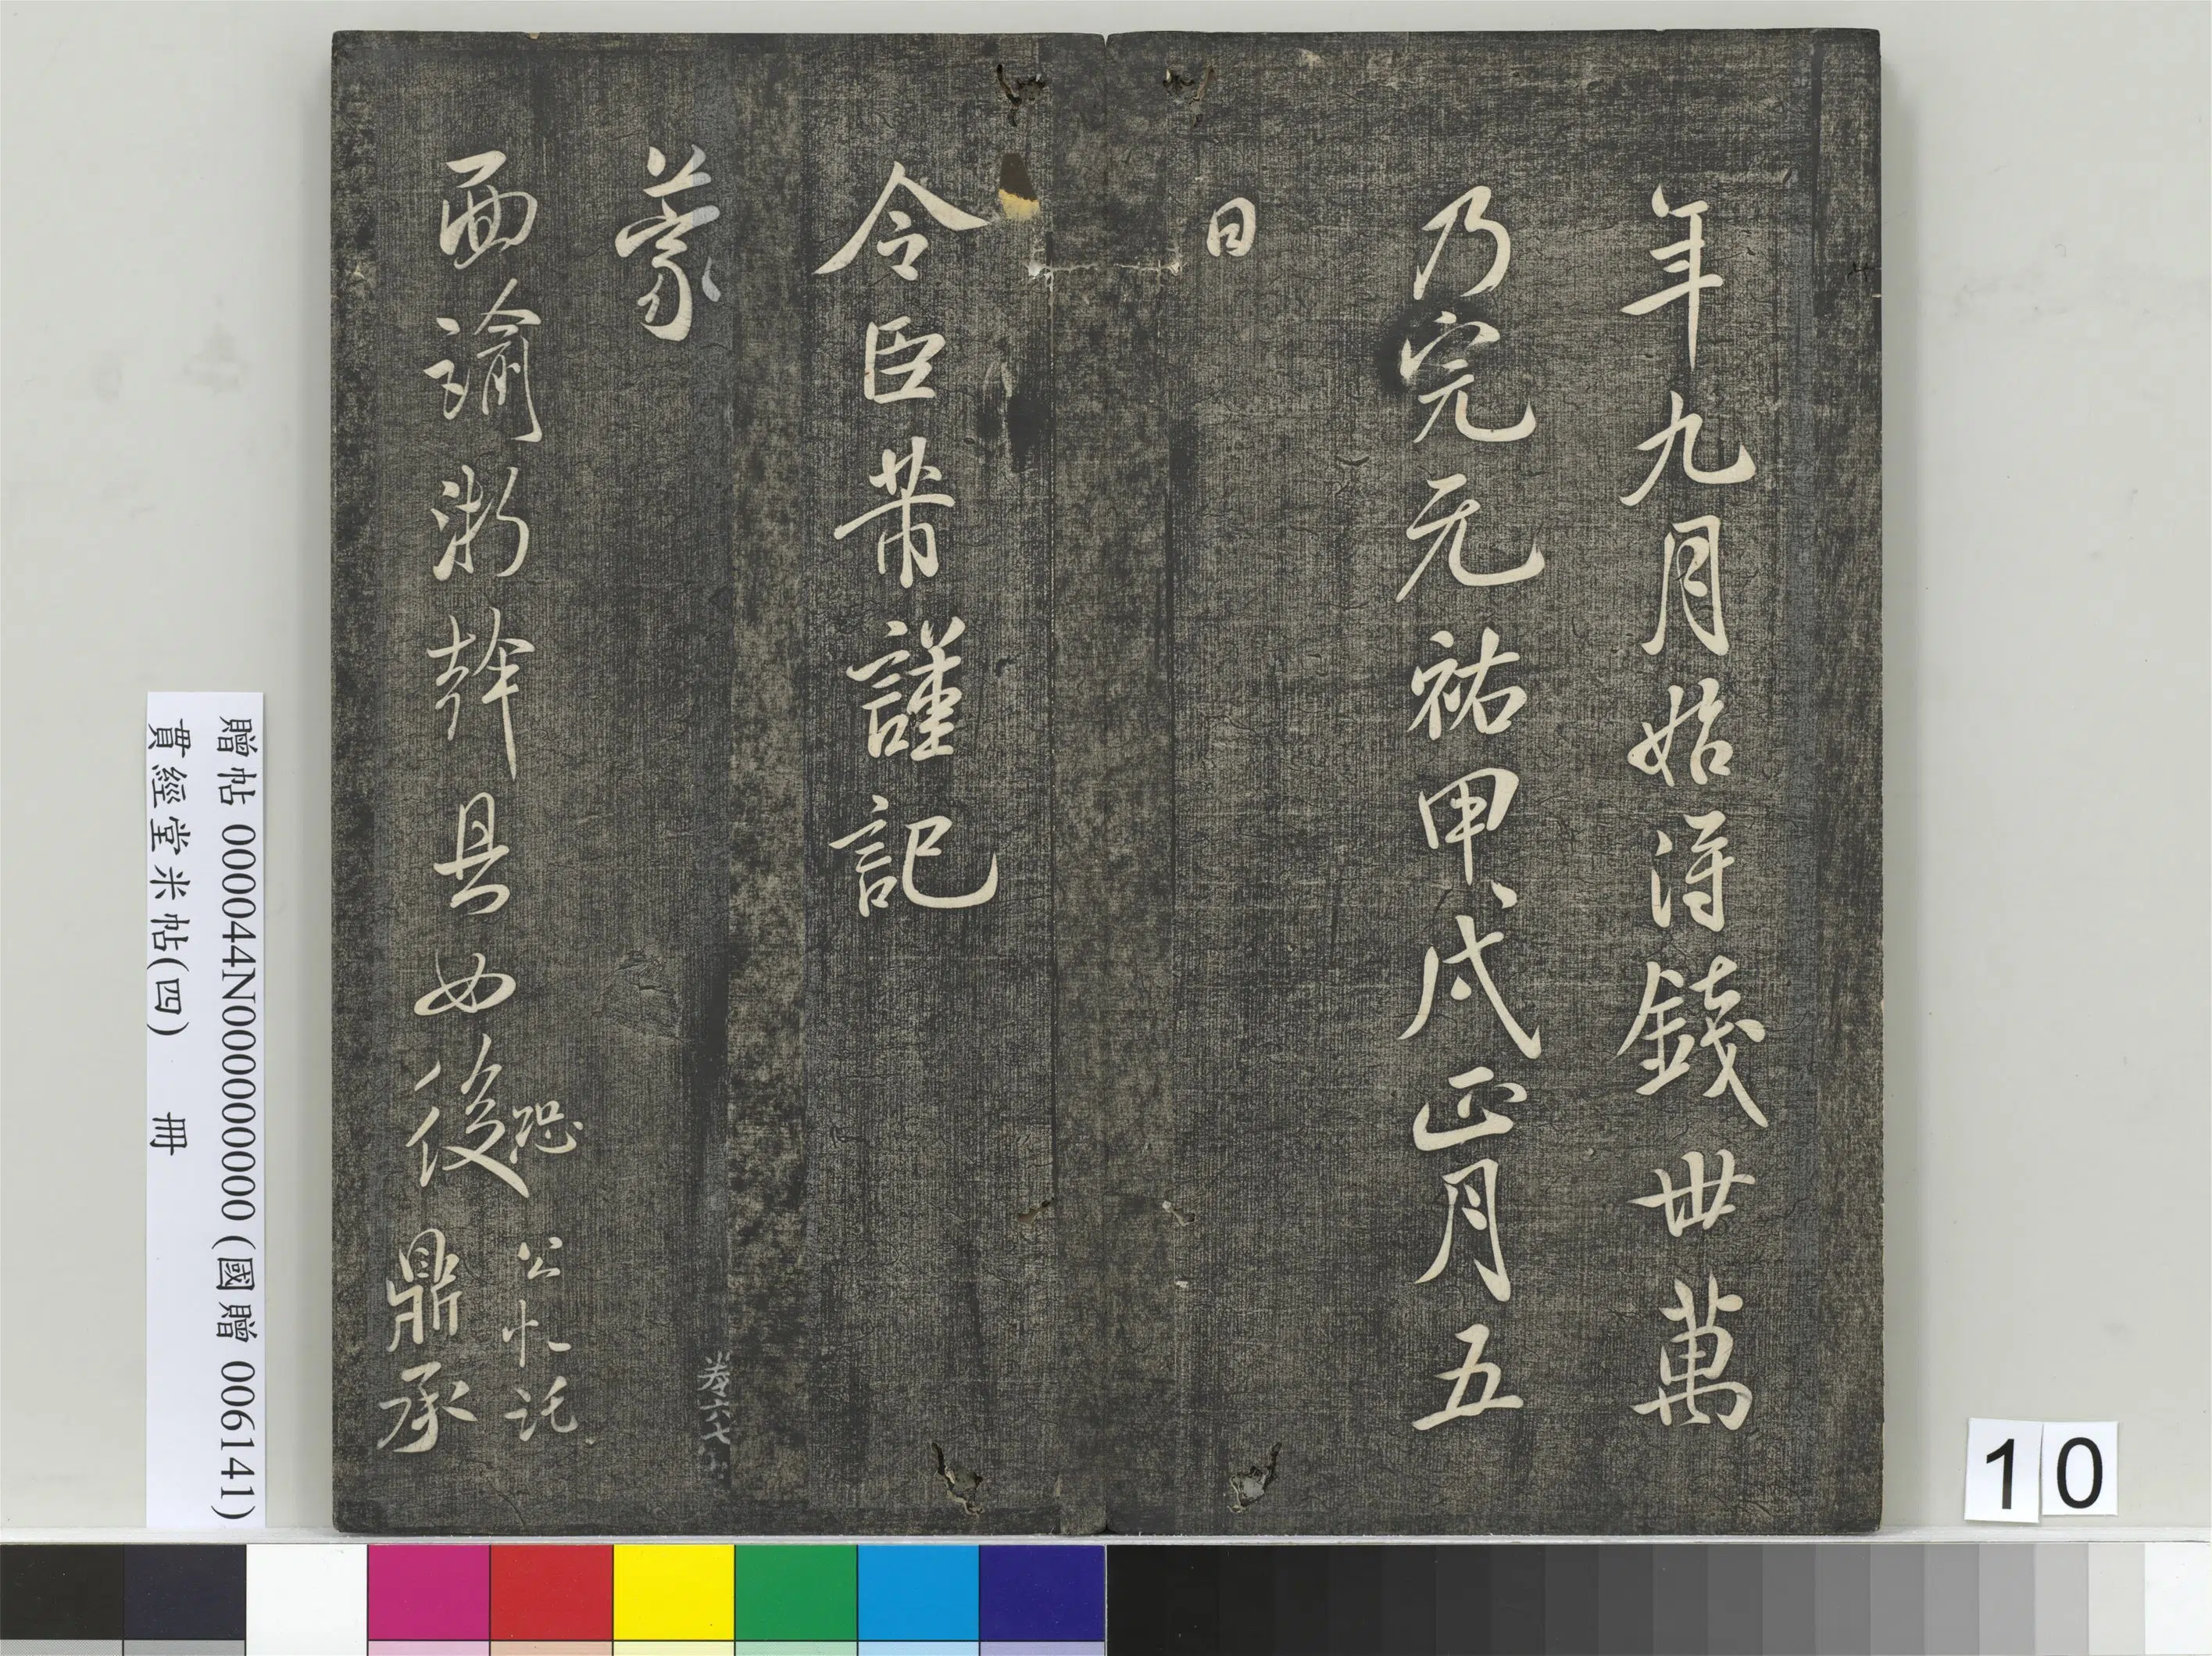 年九月始得錢卅萬
乃完元祐甲戌正月五
日
令臣芾謹記
蒙
面諭淅幹具如後
恐公忙託
鼎承
卷六七
贈帖 000044N000000000 (國贈 006141)
貫經堂米帖(四) 冊
10